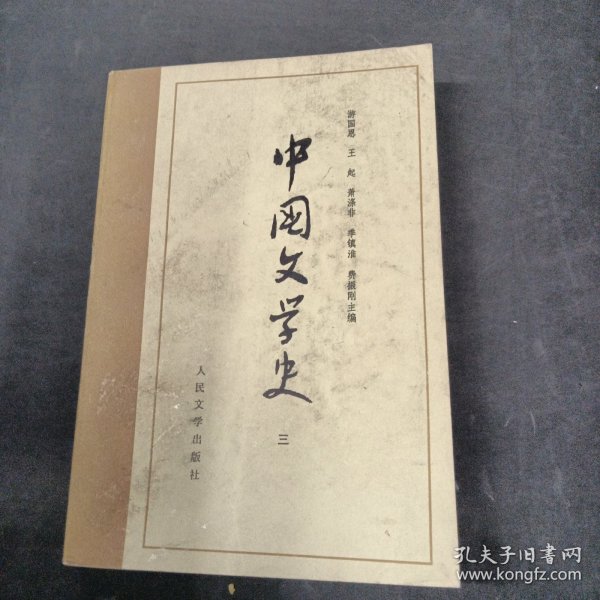 游国恩 王 起 萧涤非 季镇淮 费振刚主编
中国文学史
三
人民文学出版社
孔夫子旧书网
www.kongfz.com